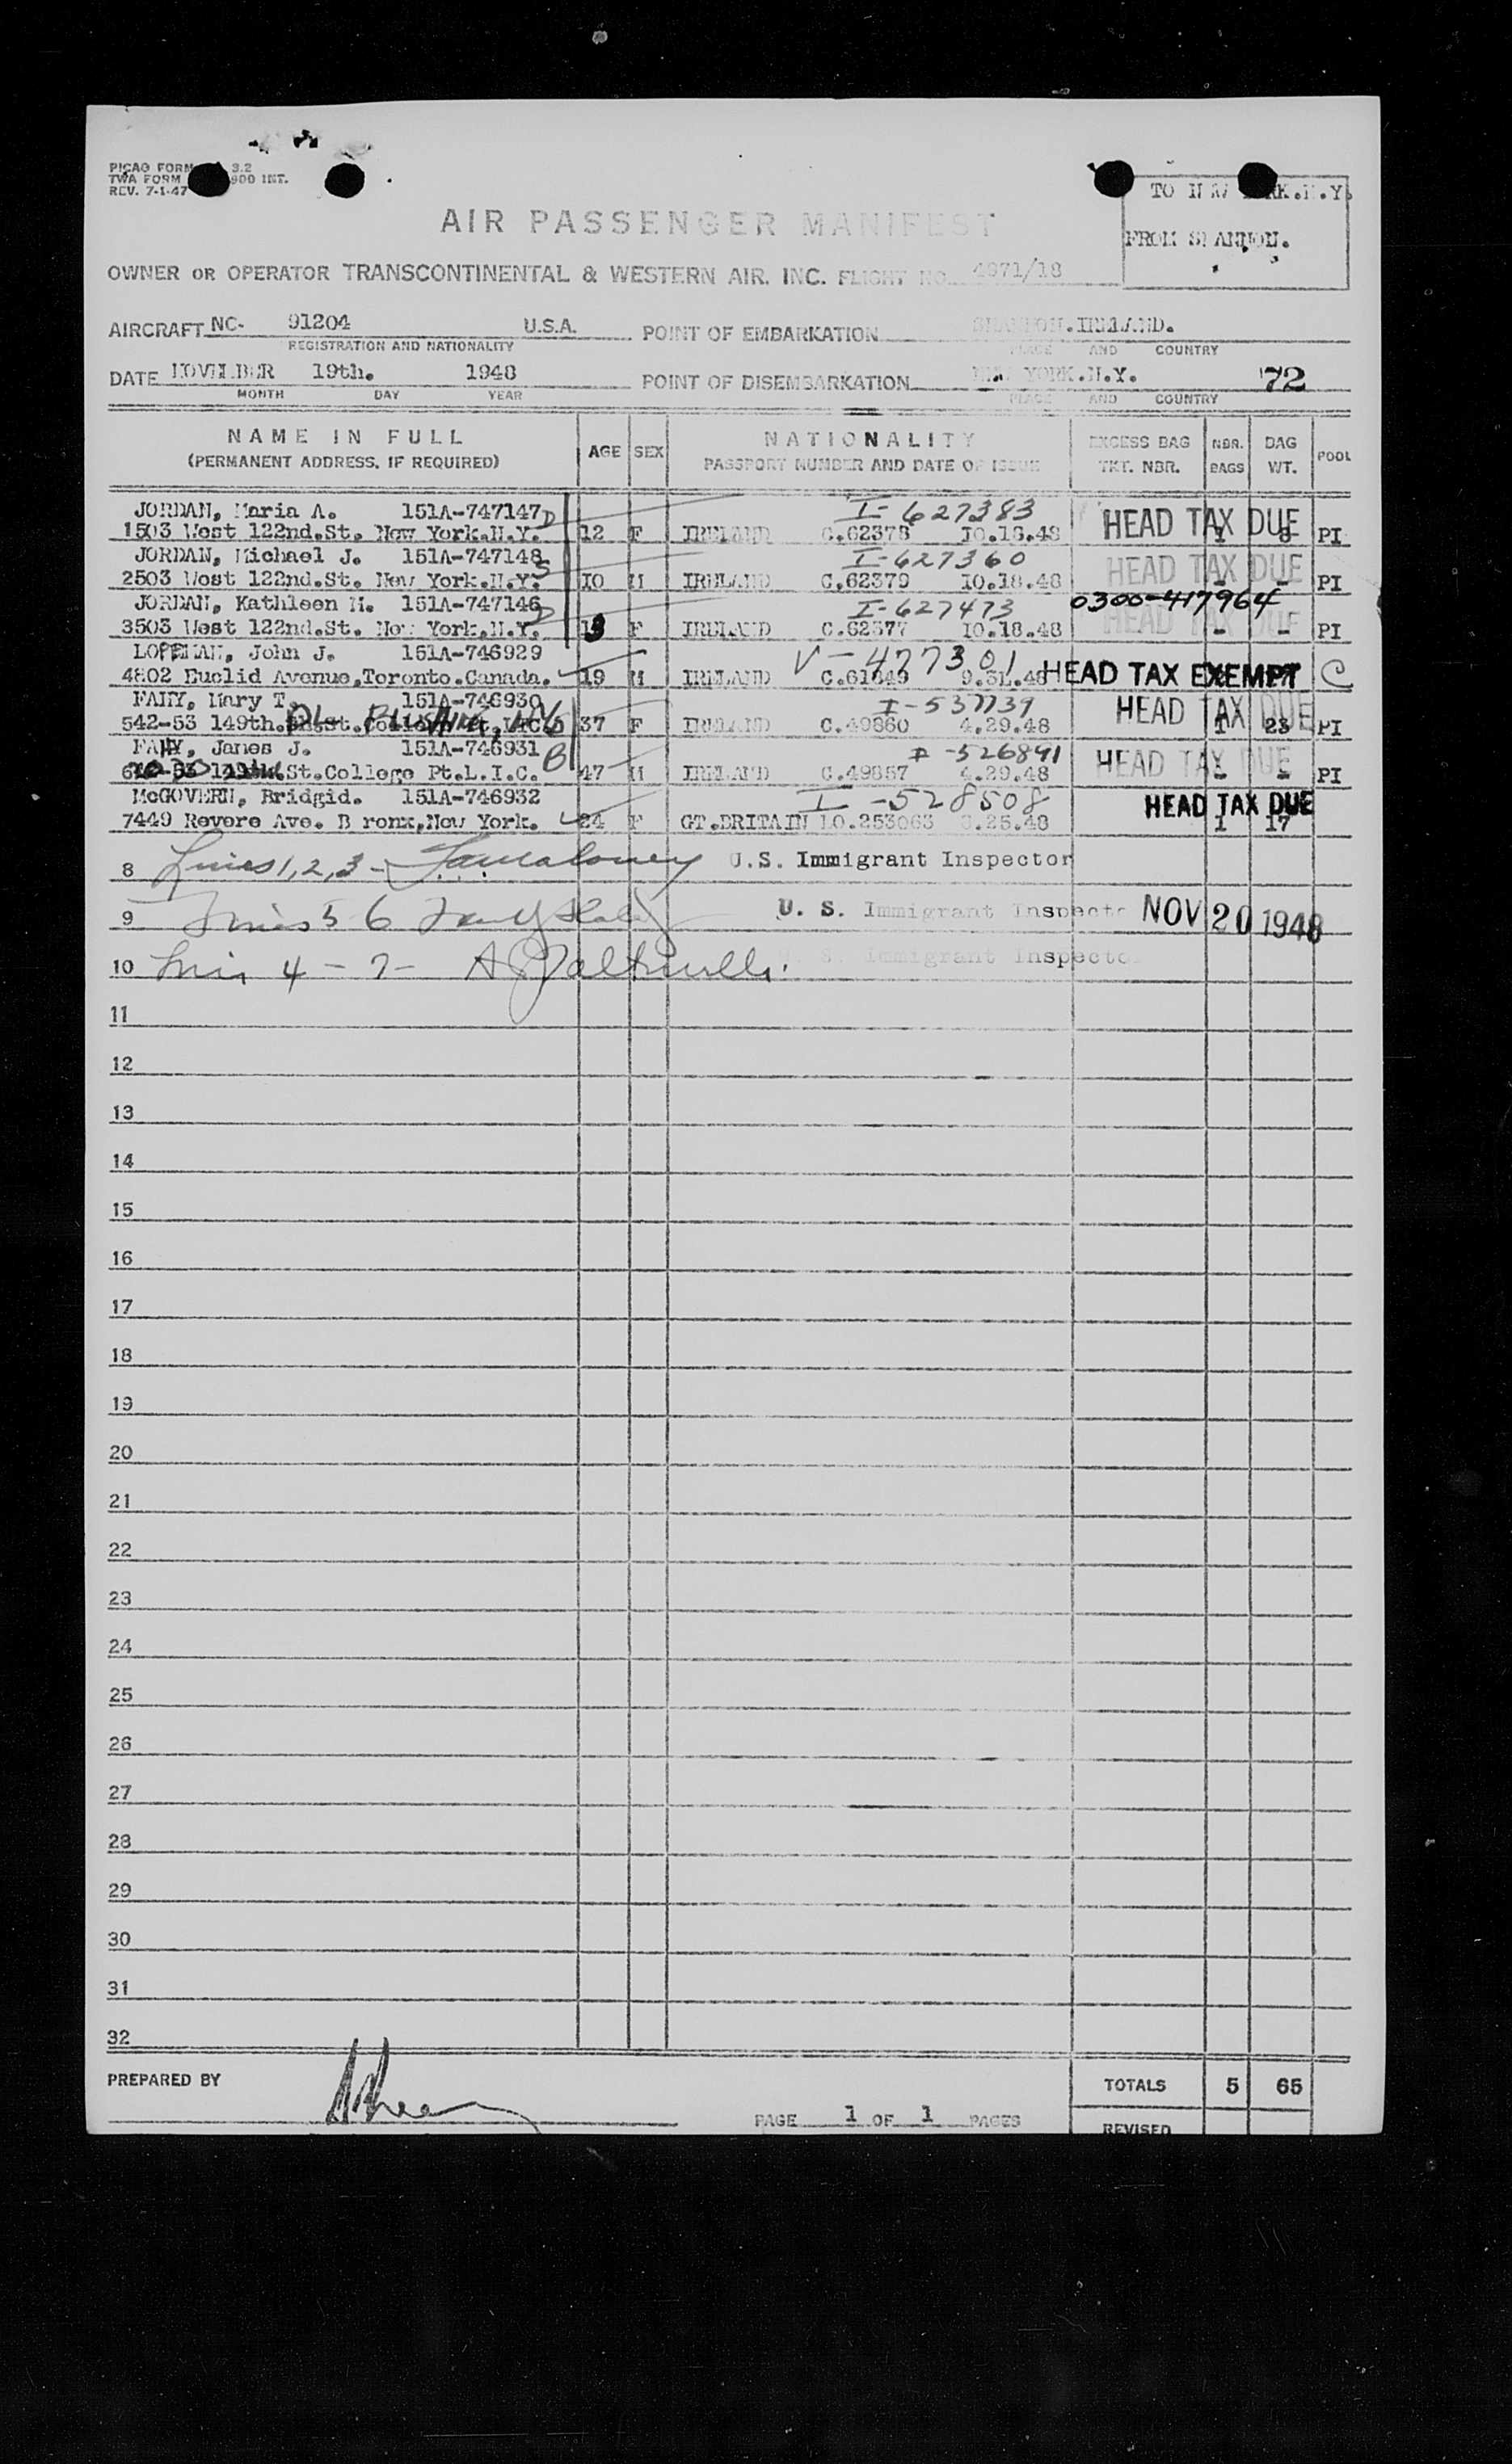 PICAO FORM 3.2
TWA FORM 900 INT.
REV. 7-1-47
TO N.Y.
FROM SHANNON.
AIR PASSENGER MANIFEST
OWNER OR OPERATOR TRANSCONTINENTAL & WESTERN AIR. INC. FLIGHT NO. 4971/18
AIRCRAFT NC- 91204 U.S.A. POINT OF EMBARKATION SHANNON.IRELAND.
REGISTRATION AND NATIONALITY PLACE AND COUNTRY
DATE NOVEMBER 19th. 1948 POINT OF DISEMBARKATION NEW YORK.N.Y. 72
MONTH DAY YEAR PLACE AND COUNTRY
NAME IN FULL AGE SEX NATIONALITY EXCESS BAG NBR. BAG POOL
(PERMANENT ADDRESS, IF REQUIRED) PASSPORT NUMBER AND DATE OF ISSUE TKT. NBR. BAGS WT.
JORDAN, Maria A. 151A-747147 D I-627383
1503 West 122nd.St. New York.N.Y. 12 F IRELAND C.62378 10.18.48 HEAD TAX DUE 1 8 PI
JORDAN, Michael J. 151A-747148 S I-627360
2503 West 122nd.St. New York.N.Y. 10 M IRELAND C.62379 10.18.48 HEAD TAX DUE - - PI
JORDAN, Kathleen M. 151A-747146 D I-627473 0300-417964
3503 West 122nd.St. New York.N.Y. F IRELAND C.62377 10.18.48 HEAD TAX DUE - - PI
John J. 151A-746929 V-477301
4802 Euclid Avenue,Toronto.Canada. 19 M IRELAND C.61849 HEAD TAX EXEMPT C
FAHY, Mary T. 151A-746930 I-537739
542-53 149th. 37 F IRELAND C.49860 4.29.48 HEAD TAX DUE 1 23 PI
FAHY, James J. 151A-746931 B I-526891
St.College Pt.L.I.C. 47 M IRELAND C.49857 4.29.48 HEAD TAX DUE - - PI
McGOVERN, Bridgid. 151A-746932 I-528508
7449 Revere Ave. B ronx,New York. 24 F GT.BRITAIN LO.253063 .25.48 HEAD TAX DUE 1 17
8 Lines 1,2,3 - U.S. Immigrant Inspector
9 Lines 5 6 U. S. Immigrant Inspecto NOV 20 1948
10 4 - 7 - U. S. Immigrant Inspecto
11
12
13
14
15
16
17
18
19
20
21
22
23
24
25
26
27
28
29
30
31
32
PREPARED BY TOTALS 5 65
PAGE 1 OF 1 PAGES
REVISED